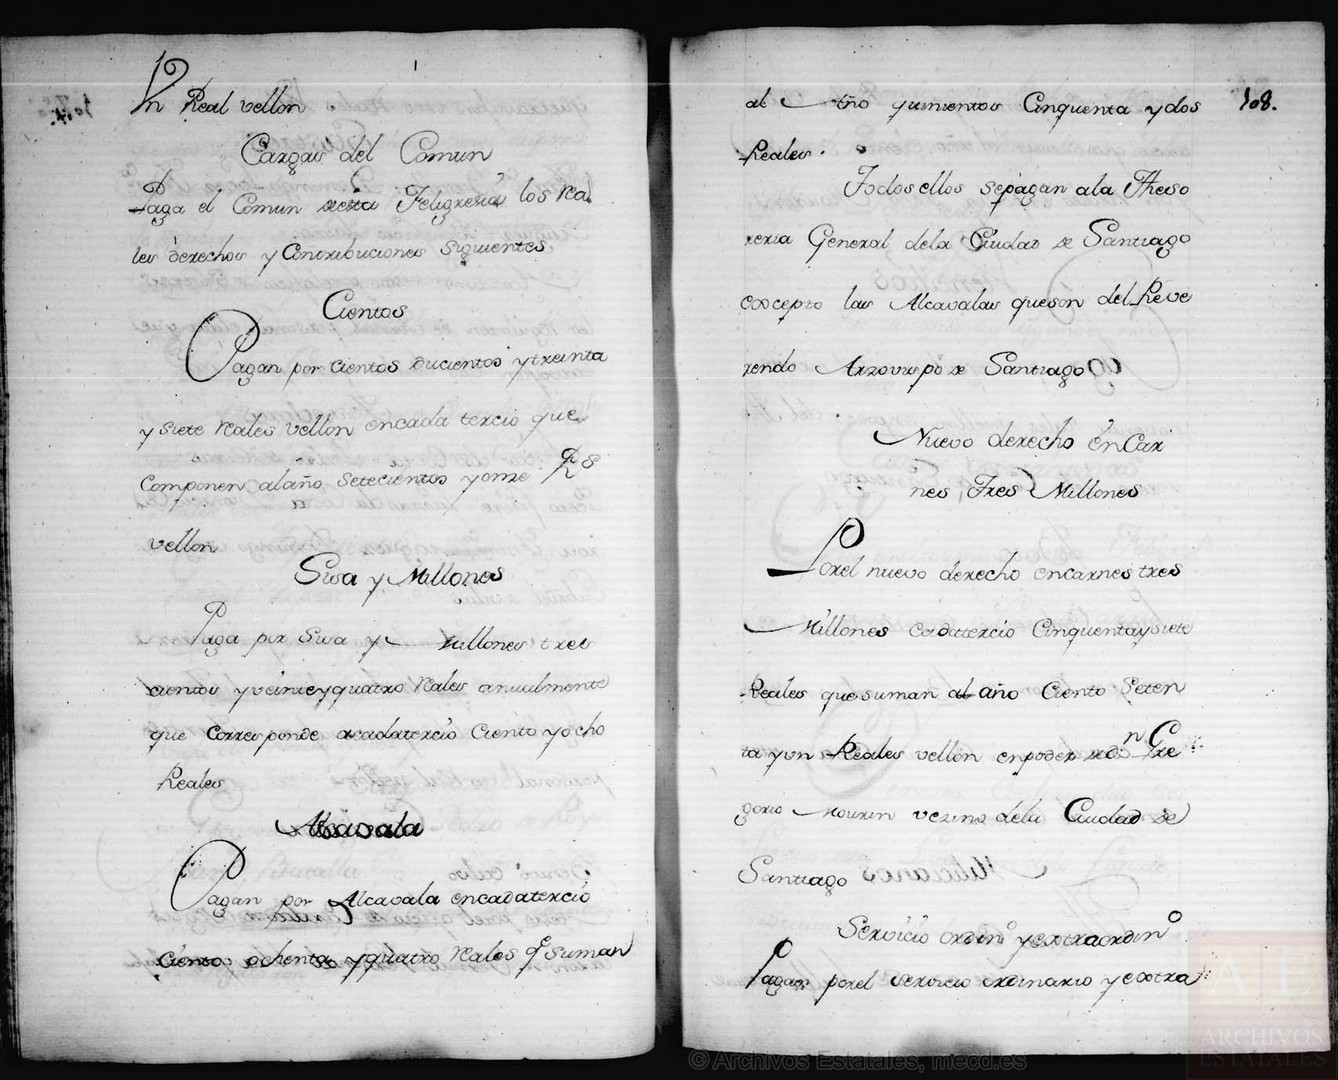 Vn Real vellon
Cargas del Comun
Paga el Comun desta Feligresia los Rea
les derechos y Contribuciones Siguientes
Cientos
Pagan por Cientos ducientos ytreinta
y siete Reales Vellon encada tercio que
Componen alaño Setecientos yonze Rs
vellon
Sisa y Millones
Paga por Sisa y Millones tres
cientos yveinteyquatro Reales anualmente
que Corresponde acadatercio Ciento yocho
Reales
Alcavala
Pagan por Alcavala encadatercio
Ciento ochenta yquatro Reales qe Suman
al Año quinientos Cinquenta ydos
Reales.
108.
Todos ellos sepagan ala Theso
reria General dela Ciudad de Santiago
excepto las Alcavalas queson del Reve
rendo Arzovispo de Santiago
Nuevo derecho en Car
nes Tres Millones
Porel nuevo derecho encarnes tres
Millones cadatercio Cinquentaysiete
Reales quesuman al año Ciento Seten
ta yun Reales vellon enpoder de Dn Gre
gorio Mourin vezino dela Ciudad de
Santiago
Servicio ordino yextraordino
Pagan porel Servicio ordinario yextra
© Archivos Estatales, mecd.es
AE
ARCHIVOS
ESTATALES